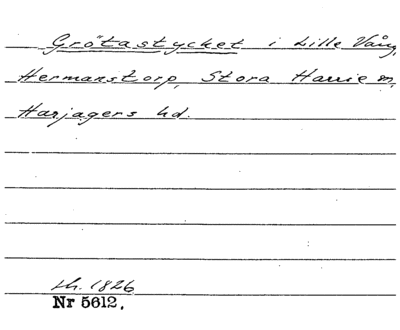 Grötastycket i Lille Vång,
Hermanstorp, Stora Harrie sn,
Harjagers hd.
Lh. 1826
Nr 5612.